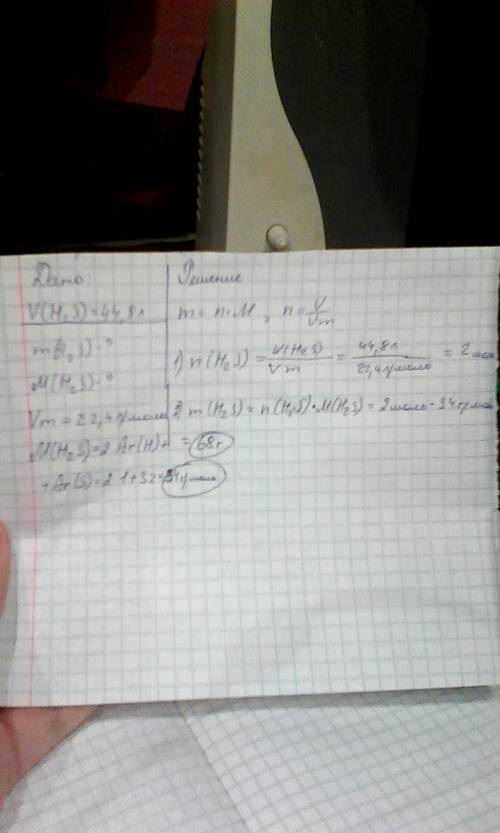 Дано:
V(H₂S)=44,8л
m(H₂S)-?
M(H₂S)-?
Vm = 22,4 г/моль
M(H₂S)=2 Ar(H)+
+Ar(S)=2·1+32=34г/моль
Решение
m = n·M, n = V/Vm
1) n(H₂S) = V(H₂S)/Vm = 44,8л/22,4г/моль = 2 моль
2) m(H₂S) = n(H₂S)·M(H₂S) = 2моль·34г/моль
= 68г